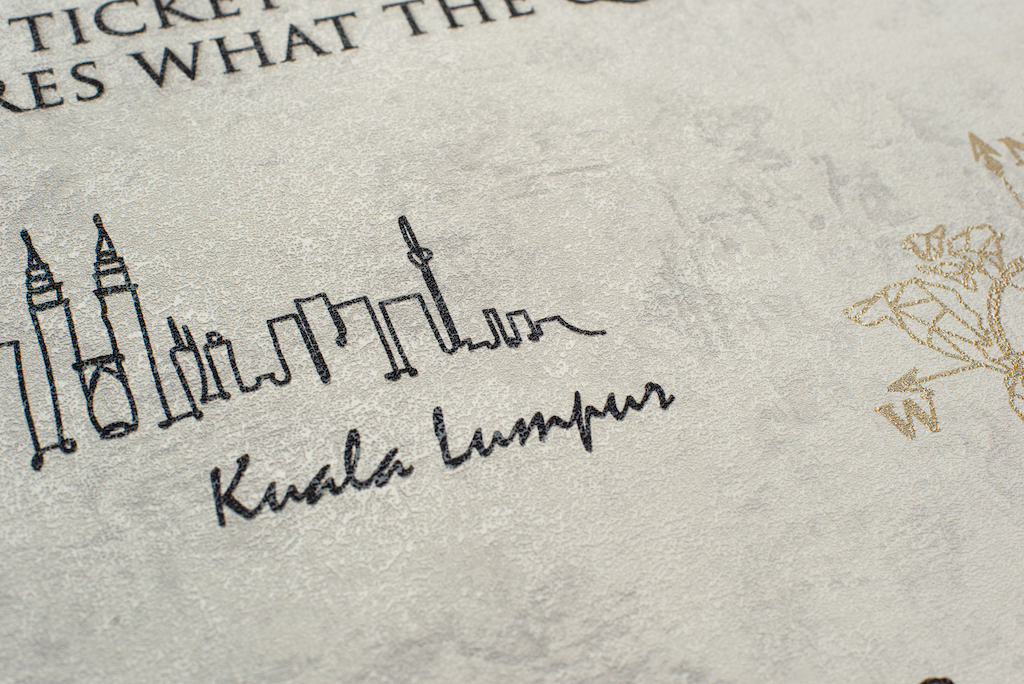 TICKET
WHAT THE
Kuala Lumpur
N
W